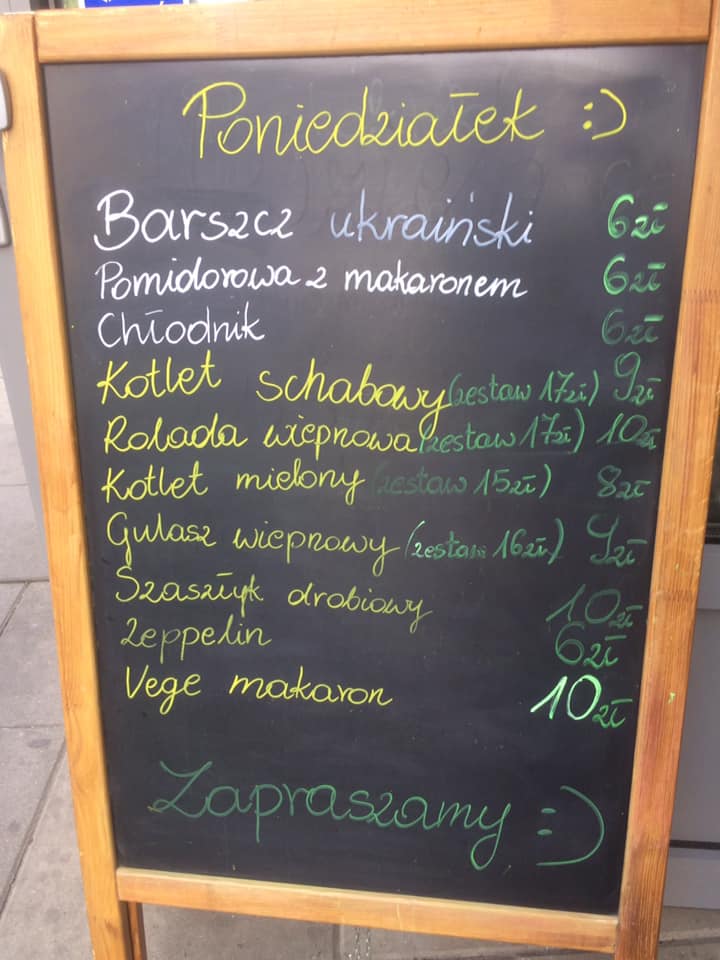 Poniedziałek :)
Barszcz ukraiński 6zł
Pomidorowa z makaronem 6zł
Chłodnik 6zł
Kotlet schabowy (zestaw 17zł) 9zł
Rolada wieprnowa (zestaw 17zł) 10zł
Kotlet mielony (zestaw 15zł) 8zł
Gulasz wieprnowy (zestaw 16zł) 9zł
Szaszłyk drobiowy 10zł
Zeppelin 6zł
Vege makaron 10zł
Zapraszamy :)